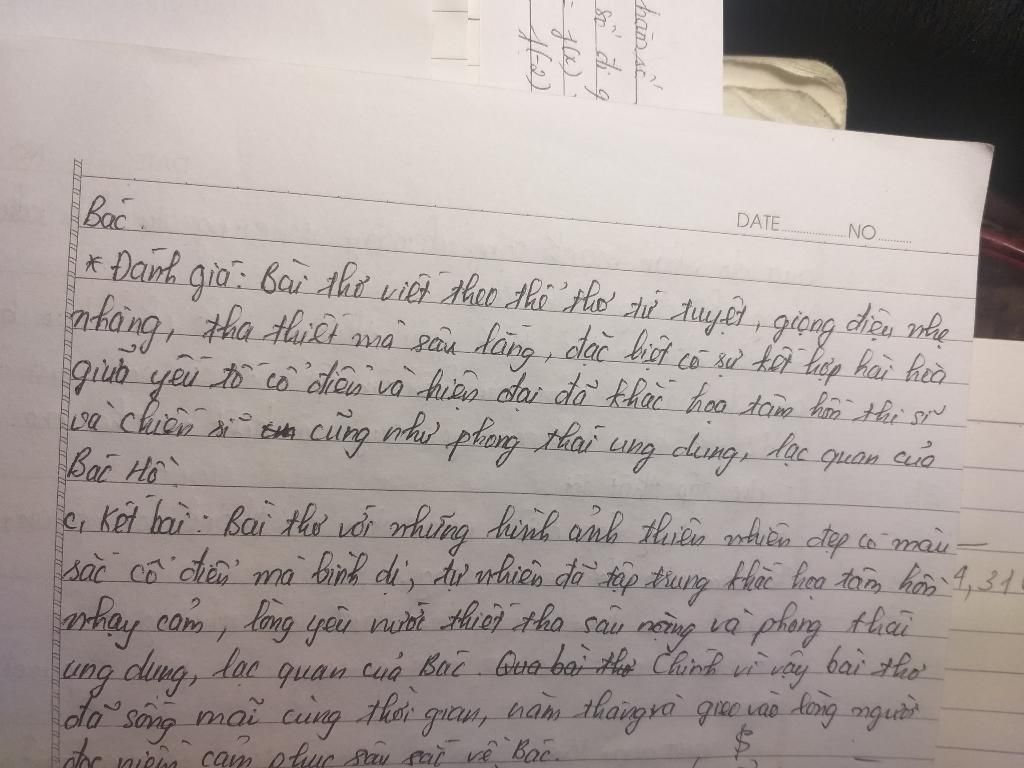 hàm số
số đi g
f(x)
f(-2)
DATE NO
Bác.
* Đánh giá: Bài thơ viết theo thể thơ tứ tuyệt, giọng điệu nhẹ
nhàng, tha thiết mà sâu lắng, đặc biệt có sự kết hợp hài hoà
giữa yếu tố cổ điển và hiện đại đã khắc hoạ tâm hồn thi sĩ
và chiến sĩ cũng như phong thái ung dung, lạc quan của
Bác Hồ.
c, Kết bài: Bài thơ với những hình ảnh thiên nhiên đẹp có màu
sắc cổ điển mà bình dị, tự nhiên đã tập trung khắc hoạ tâm hồn
nhạy cảm, lòng yêu nước thiết tha sâu nặng và phong thái
ung dung, lạc quan của Bác. Qua bài thơ Chính vì vậy bài thơ
đã sống mãi cùng thời gian, năm tháng và gieo vào lòng người
đọc niềm cảm phục sâu sắc về Bác.
1,31
$